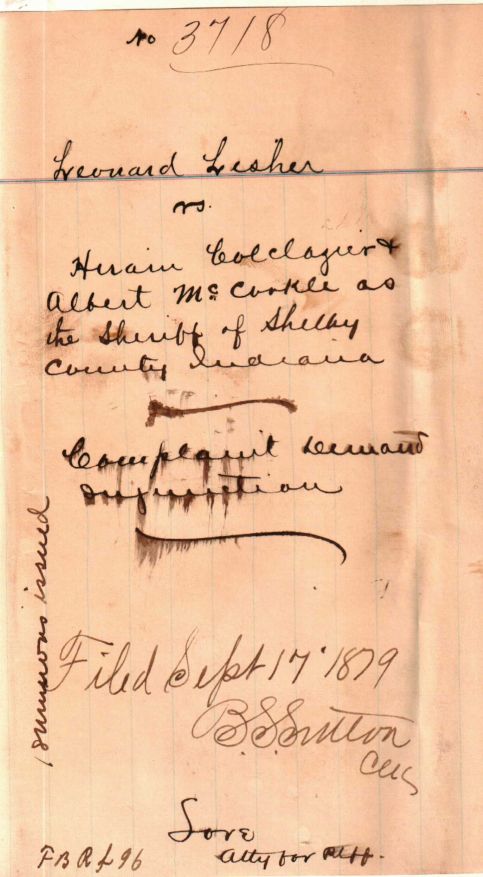 No 3718
Leonard Lesher
vs.
Hiram Colclazier &
Albert Mc Corkle as
the Sheriff of Shelby
County Indiana
Complaint Demand
Injunction
summons issued
Filed Sept 17" 1879
B.S. Sutton
Clk
Love
Atty for Pltff.
F B R f 96